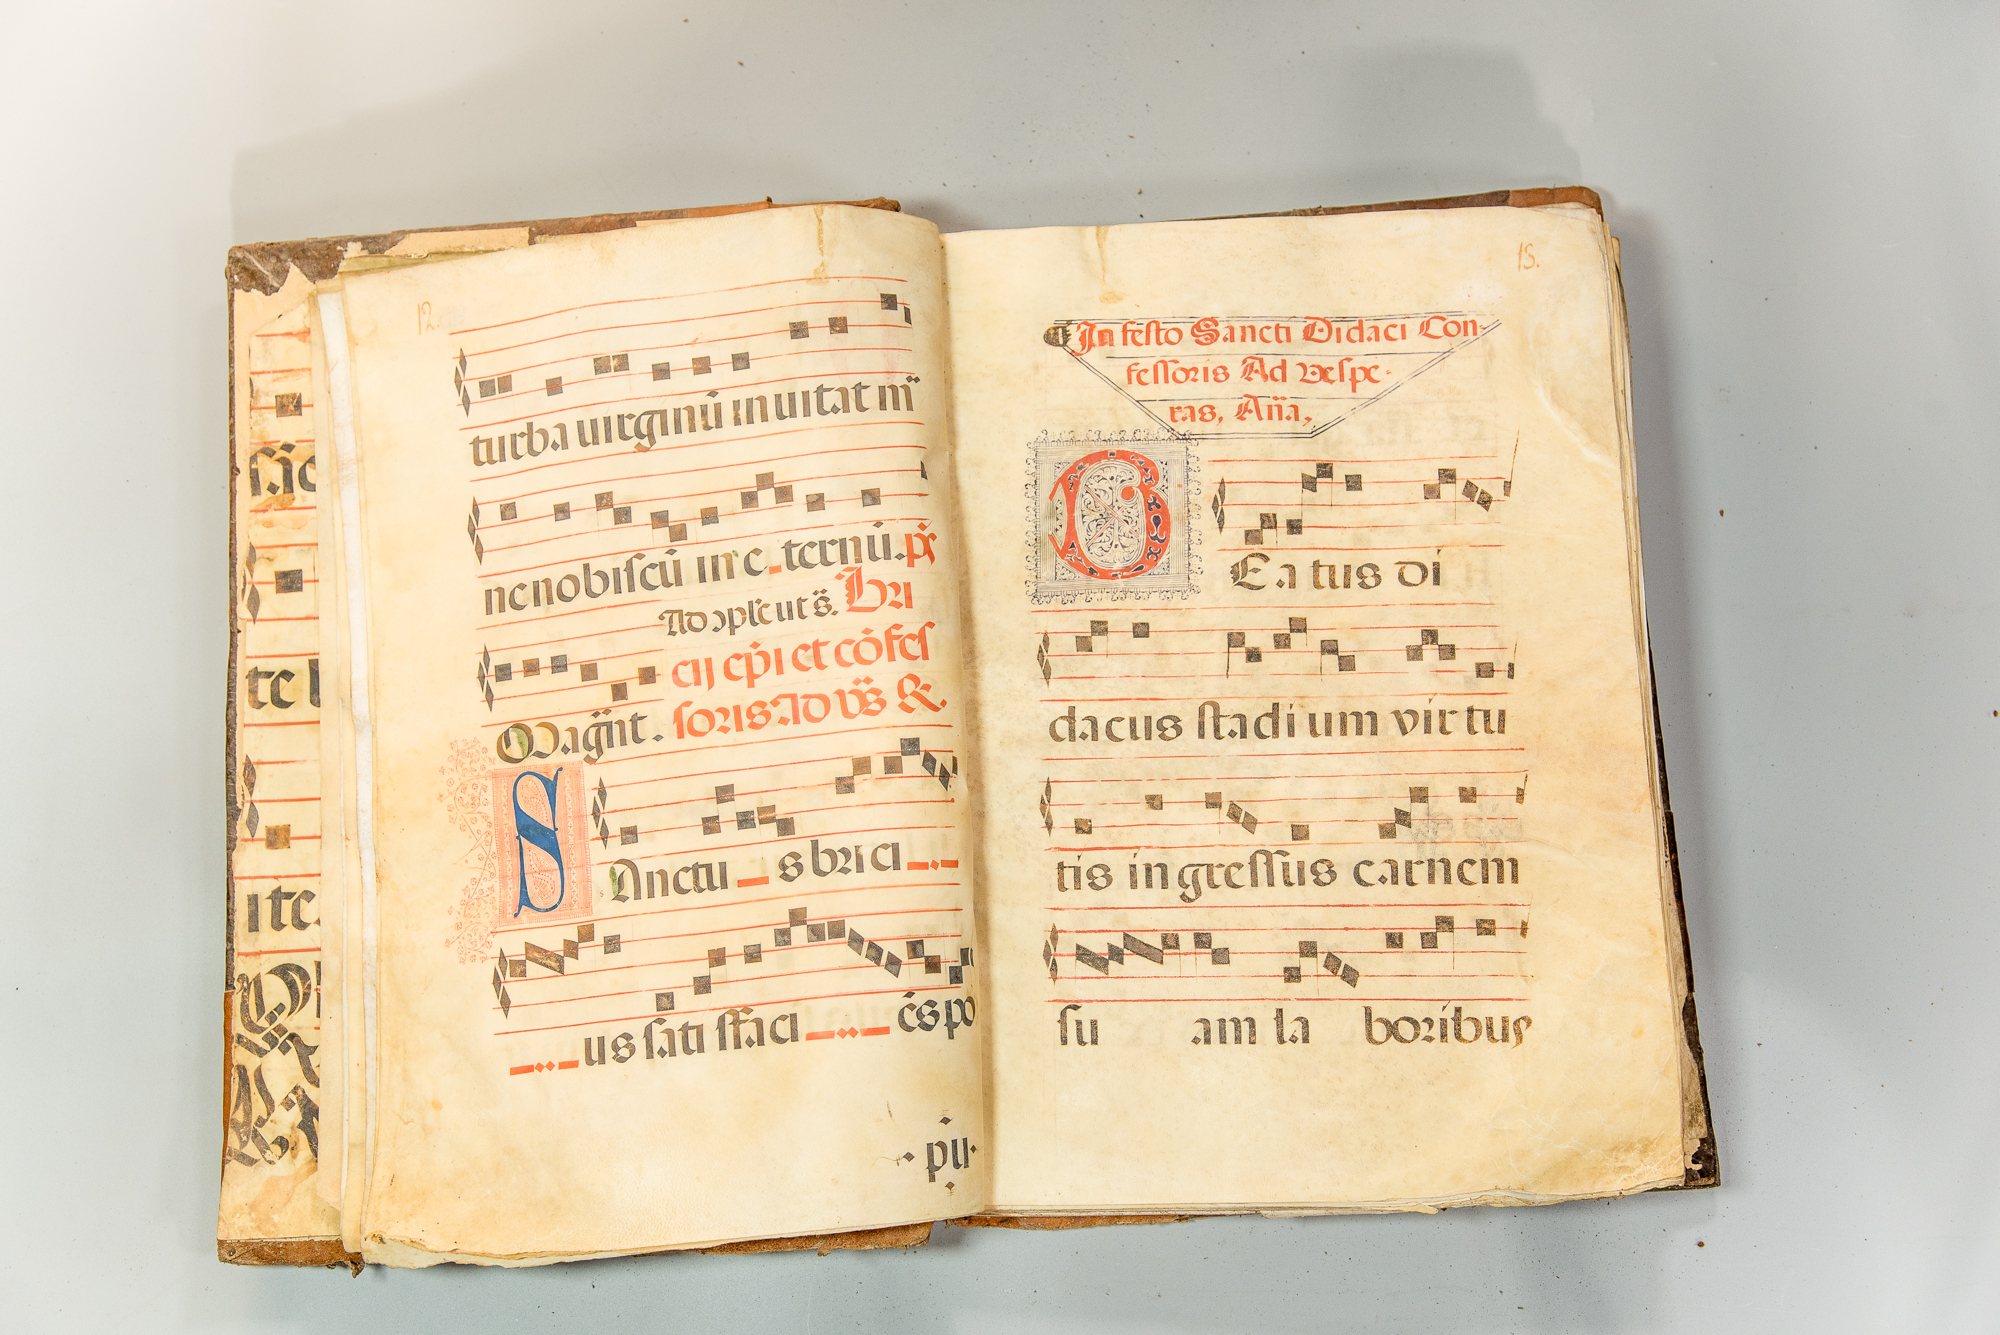 sic
te
ite.
12.
turba uirginū inuitat nr̄
ne nobiscū in e_ternū. ps̄
Ad ɔpl̄e ut s̄. Bri
cij ep̄i et cōfes
Magn̄t. soris Ad vs̄ &.
SAnctu_s brici
us sati sfaci ēs po
pu
15.
In festo Sancti Didaci Con-
fessoris Ad vespe-
ras, Añā,
BEatus di
dacus stadium virtu
tis ingressus carnem
su am la boribus